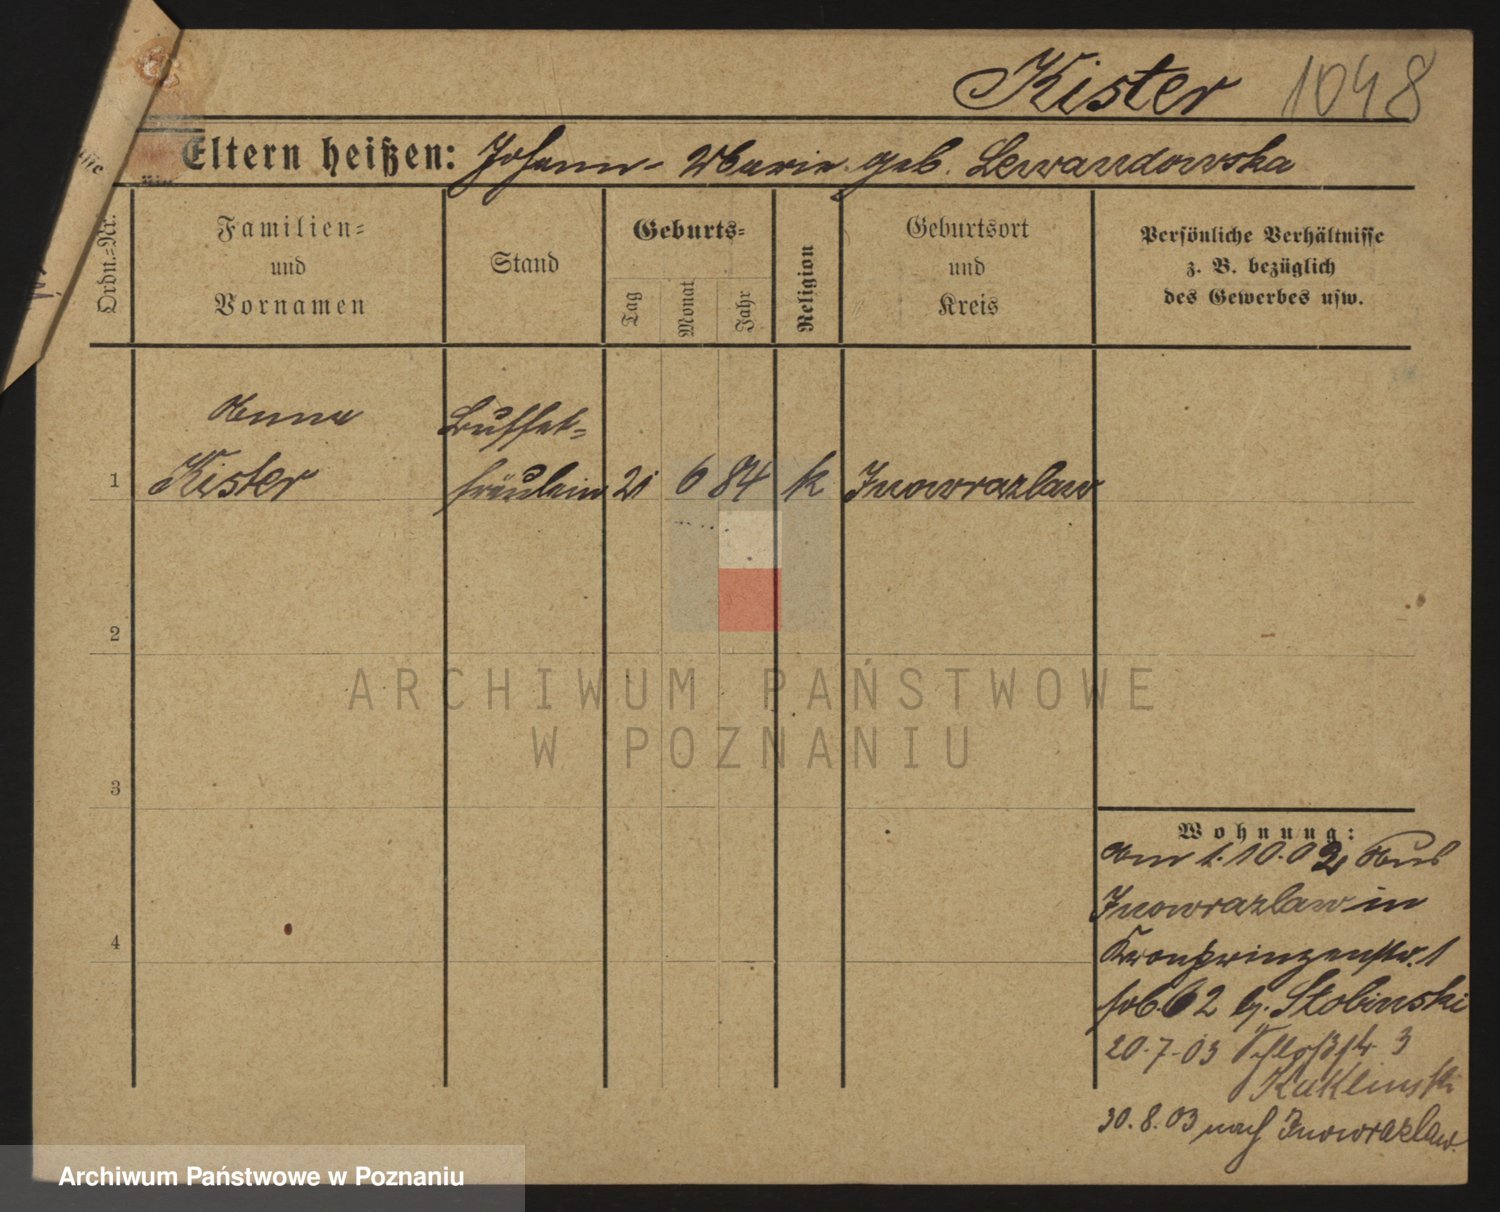 Kister 1048
Eltern heißen: Johann - Marie geb. Lewandowska
Ordn.-Nr.
Familien-
und
Vornamen
Stand
Geburts-
Tag
Monat
Jahr
Religion
Geburtsort
und
Kreis
Persönliche Verhältnisse
z. B. bezüglich
des Gewerbes usw.
Anna Buffet-
1 Kister fräulein 21 6 84 k Inowrazlaw
2
ARCHIWUM PAŃSTWOWE
W POZNANIU
3
Wohnung:
Am 1.10.02 Aus
Inowrazlaw in
4
Kronprinzenstr. 1
62 b. Stobinski
20.7.03 Schloßstr 3
Kuklinski
30.8.03 nach Inowrazlaw.
Archiwum Państwowe w Poznaniu